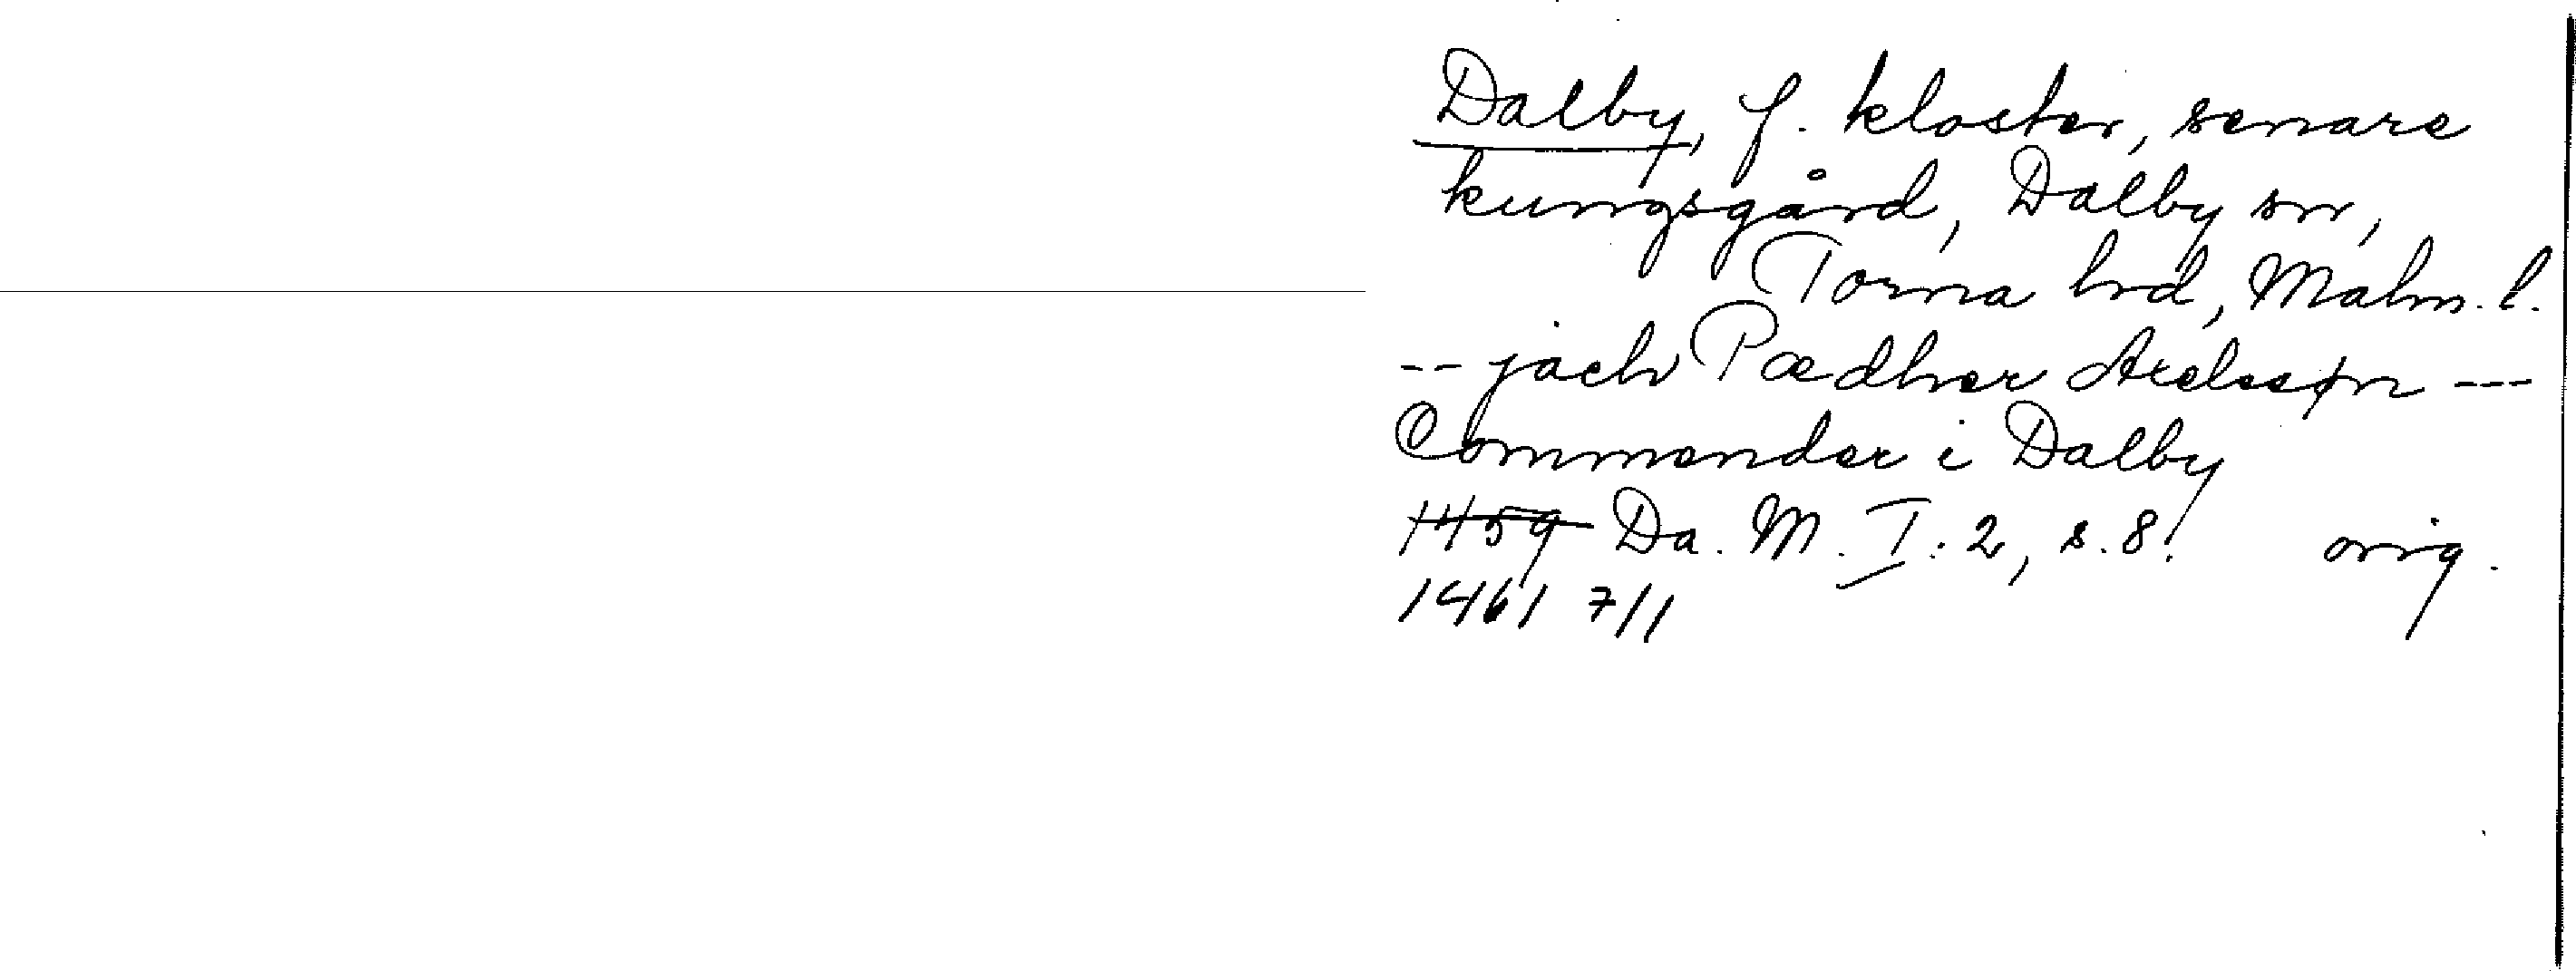 Dalby, f. kloster, senare
kungsgård, Dalby sn,
Torna hrd, Malm. l.
-- jach Pædher Axelssøn ---
Commender i Dalby
1459 Da. M. I: 2, s. 8. orig.
1461 7/1